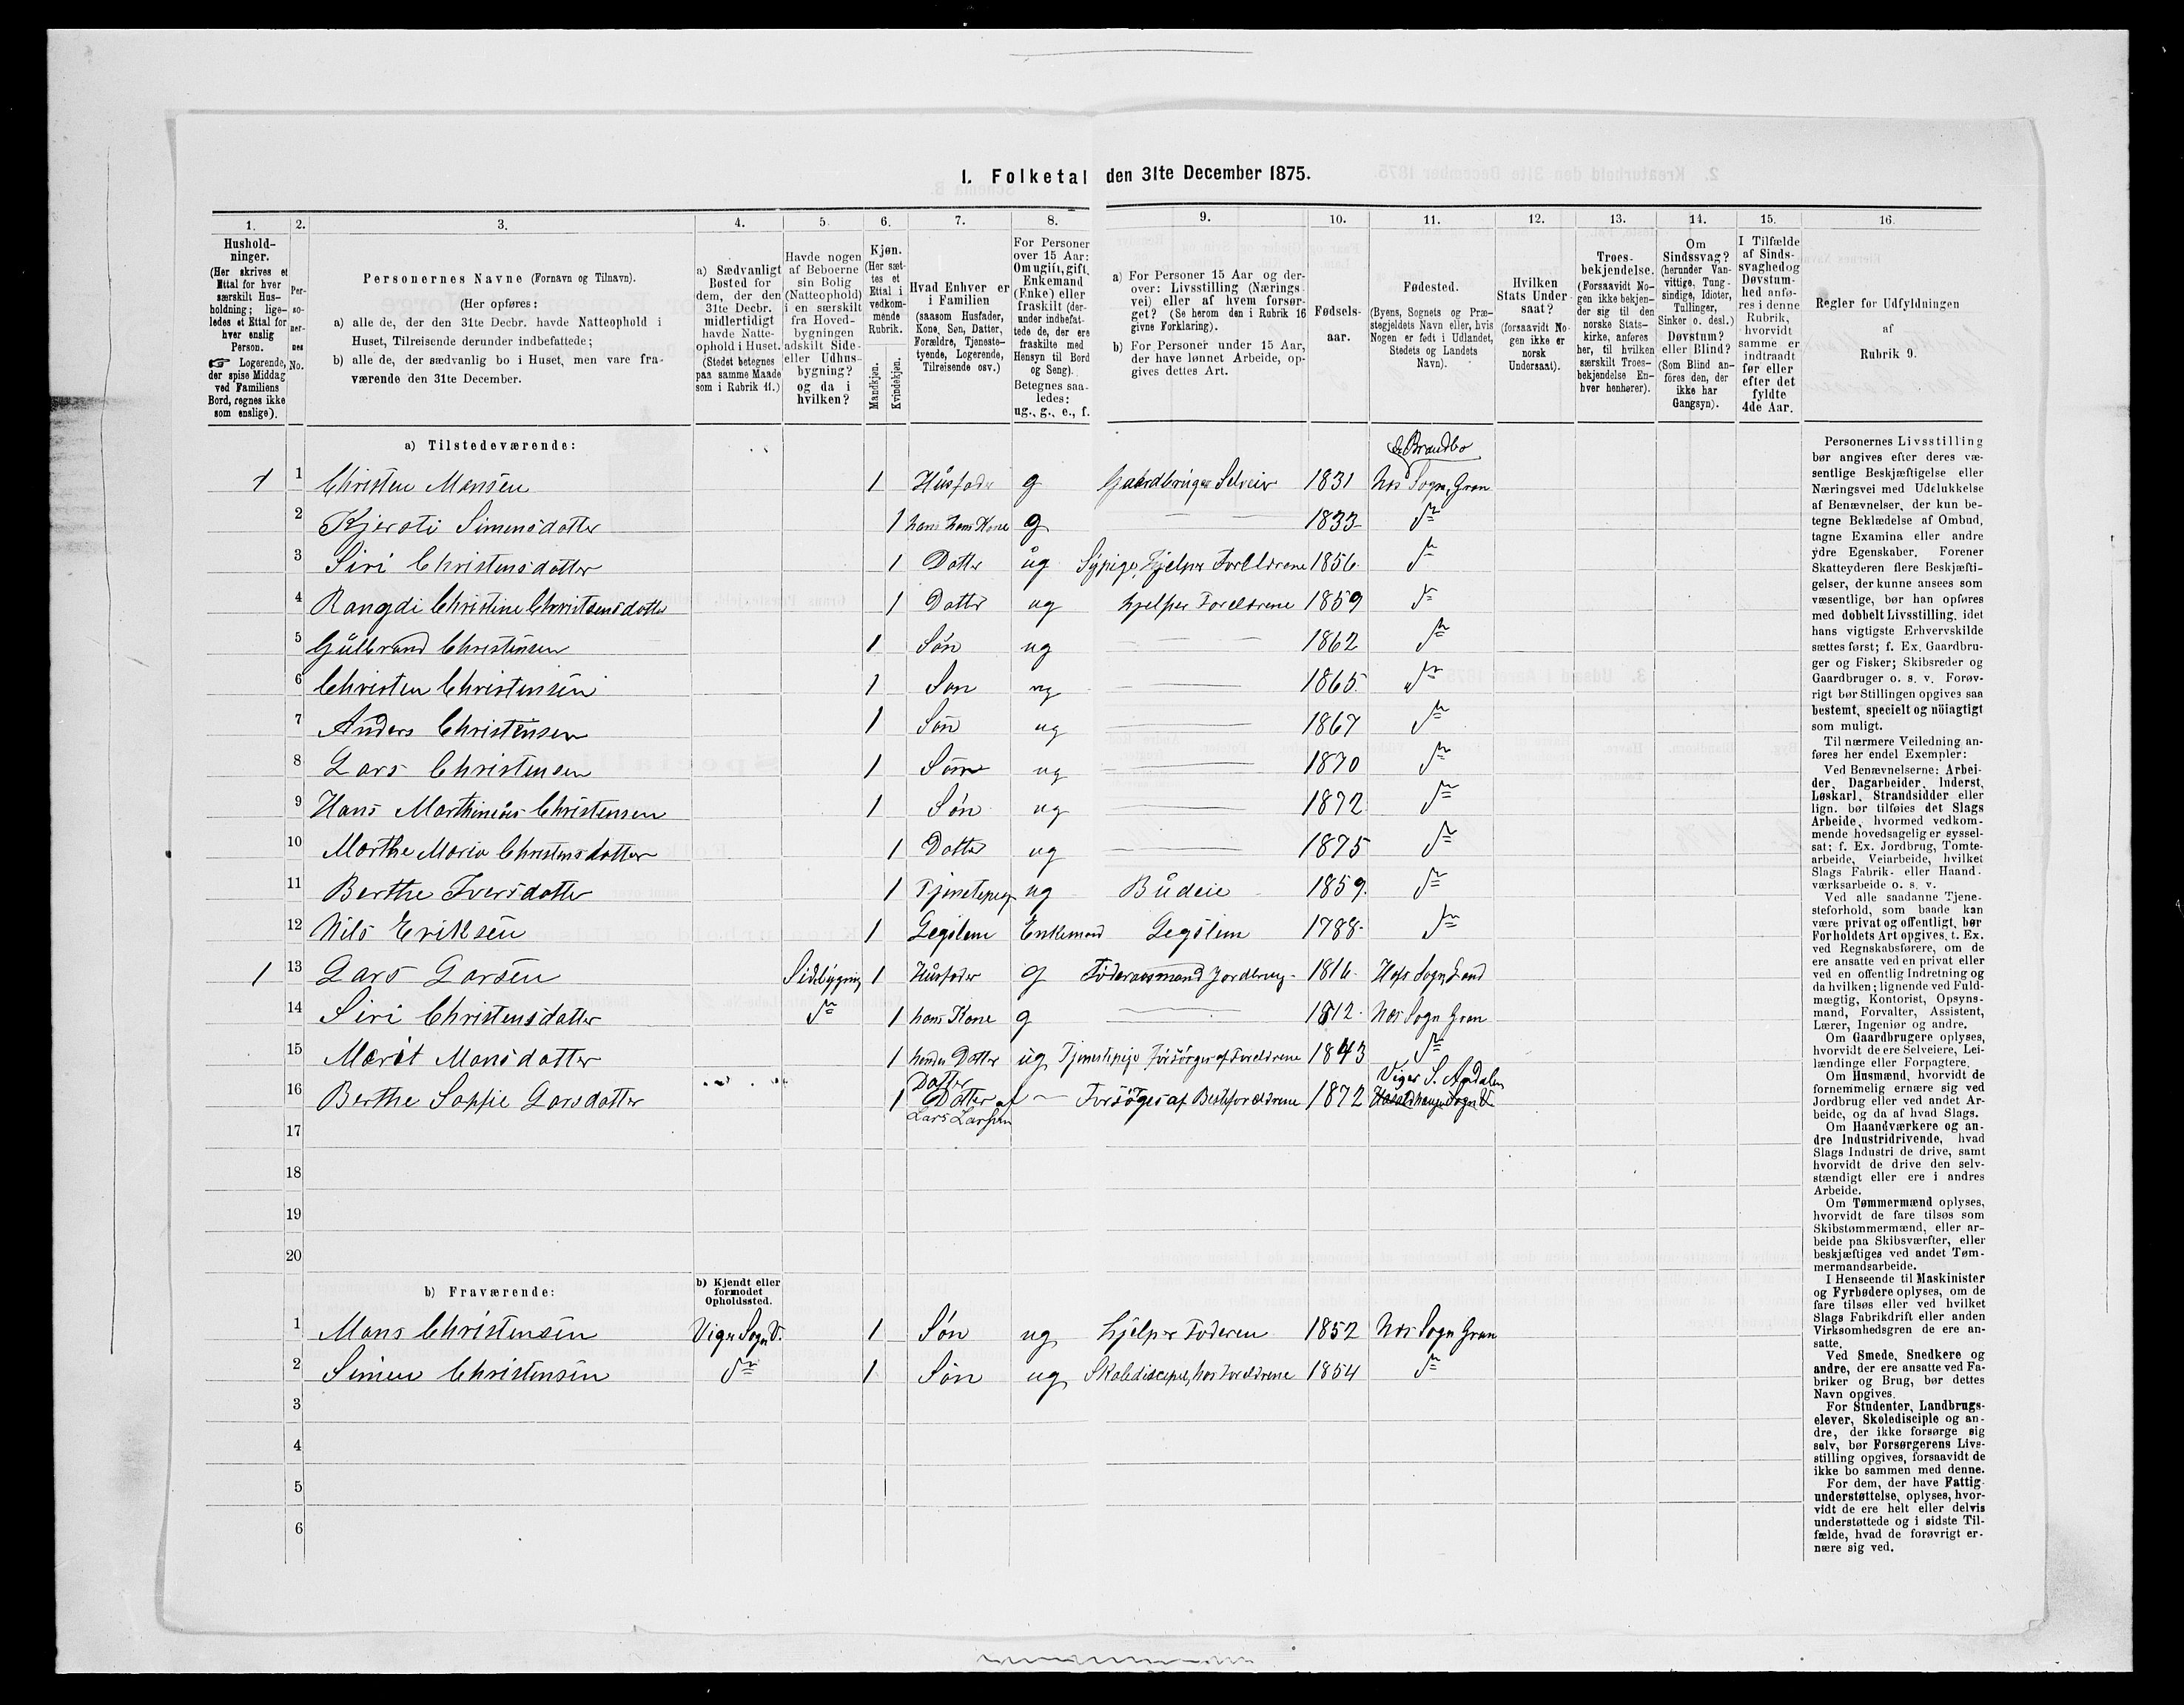 1. Folketal den 31te December 1875.
1. 2. 3. 4. 5. 6. 7. 8. 9. 10. 11. 12. 13. 14. 15. 16.
Hushold-
ninger.
(Her skrives et
Ettal for hver
særskilt Hus-
holdning; lige-
ledes et Ettal for
hver enslig
Person.
☞ Logerende,
der spise Middag
ved Familiens
Bord, regnes ikke
som enslige).
Per-
so-
ner-
nes
No.
Personernes Navne (Fornavn og Tilnavn).
(Her opføres:
a) alle de, der den 31te Decbr. havde Natteophold i
Huset, Tilreisende derunder indbefattede;
b) alle de, der sædvanlig bo i Huset, men vare fra-
værende den 31te December.
a) Sædvanligt
Bosted for
dem, der den
31te Decbr.
midlertidigt
havde Natte-
ophold i Huset.
(Stedet betegnes
paa samme Maade
som i Rubrik 11.)
Havde nogen
af Beboerne
sin Bolig
(Natteophold)
i en særskilt
fra Hoved-
bygningen
adskilt Side-
eller Udhus-
bygning?
og da i
hvilken?
Kjøn.
(Her sæt-
tes et
Ettal i
vedkom-
mende
Rubrik.
Mandkjøn.
Kvindekjøn.
Hvad Enhver er
i Familien
(saasom Husfader,
Kone, Søn, Datter,
Forældre, Tjeneste-
tyende, Logerende,
Tilreisende osv.)
For Personer
over 15 Aar:
Om ugift, gift,
Enkemand
(Enke) eller
fraskilt (der-
under indbefat-
tede de, der ere
fraskilte med
Hensyn til Bord
og Seng).
Betegnes saa-
ledes:
ug., g., e., f.
a) For Personer 15 Aar og der-
over: Livsstilling (Nærings-
vei) eller af hvem forsør-
get? (Se herom den i Rubrik 16
givne Forklaring).
b) For Personer under 15 Aar,
der have lønnet Arbeide, op-
gives dettes Art.
Fødsels-
aar.
Fødested.
(Byens, Sognets og Præ-
stegjeldets Navn eller, hvis
Nogen er født i Udlandet,
Stedets og Landets
Navn).
Hvilken
Stats Under-
saat?
(forsaavidt No-
gen ikke er
norsk
Undersaat).
Troes-
bekjendelse.
(Forsaavidt No-
gen ikke bekjen-
der sig til den
norske Stats-
kirke, anføres
her, til hvilken
særskilt Troes-
bekjendelse En-
hver henhører).
Om
Sindssvag?
(herunder Van-
vittige, Tung-
sindige, Idioter,
Tullinger,
Sinker o. desl.)
Døvstum?
eller Blind?
(Som Blind an-
føres den, der
ikke har
Gangsyn).
I Tilfælde
af Sinds-
svaghed og
Døvstum-
hed anfø-
res i denne
Rubrik,
hvorvidt
samme er
indtraadt
før eller
efter det
fyldte
4de Aar.
Regler for Udfyldningen
af
Rubrik 9.
a) Tilstedeværende:
Brandbo
1 1 Christen Monsen 1 Husfader g Gaardbruger Selveier 1831 Næs Sogn, Gran
2 Kjersti Simensdatter 1 hans Kone g 1833 Do
3 Siri Christensdatter 1 Datter ug Sypige, Hjelper Foreldrene 1856 Do
4 Rangdi Christine Christensdatter 1 Datter ug hjelper Foreldrene 1859 Do
5 Gulbrand Christensen 1 Søn ug 1862 Do
6 Christen Christensen 1 Søn ug 1865 Do
7 Anders Christensen 1 Søn ug 1867 Do
8 Lars Christensen 1 Søn ug 1870 Do
9 Hans Marthinius Christensen 1 Søn ug 1872 Do
10 Marthe Maria Christensdatter 1 Datter ug 1875 Do
11 Berthe Iversdatter 1 Tjenestepige ug Budeie 1859 Do
12 Nils Eriksen 1 Legdslem Enkemand Legdslem 1788 Do
1 13 Lars Larsen Sidebygning 1 Husfader g Føderaadsmand Jordbrug 1816 Hofs Sogn Land
14 Siri Christensdatter Do 1 hans Kone g 1812 Næs Sogn Gran
15 Marit Monsdatter 1 hendes Datter ug Tjenestepige Forsørges af Foreldrene 1843 Do
16 Berthe Sophie Larsdatter 1 Datter Datter af Lars Larsen Forsørges af Besteforeldrene 1872 Viger S. Aadalen
17
18
19
20
b) Fraværende:
b) Kjendt eller
formodet
Opholdssted.
1 Mons Christensen Viger Sogn 1 Søn ug hjelper Faderen 1852 Næs Sogn Gran
2 Simen Christensen Do 1 Søn ug Skolediscipel, hos Foreldrene 1854 Do
3
4
5
6
Personernes Livsstilling
bør angives efter deres væ-
sentlige Beskjæftigelse eller
Næringsvei med Udelukkelse
af Benævnelser, der kun be-
tegne Beklædelse af Ombud,
tagne Examina eller andre
ydre Egenskaber. Forener
Skatteyderen flere Beskjæfti-
gelser, der kunne ansees som
væsentlige, bør han opføres
med dobbelt Livsstilling, idet
hans vigtigste Erhvervskilde
sættes først; f. Ex. Gaardbru-
ger og Fisker; Skibsreder og
Gaardbruger o. s. v. Forøv-
rigt bør Stillingen opgives saa
bestemt, specielt og nöiagtigt
som muligt.
Til nærmere Veiledning an-
føres her endel Exempler:
Ved Benævnelserne: Arbei-
der, Dagarbeider, Inderst,
Løskarl, Strandsidder eller
lign. bør tilføies det Slags
Arbeide, hvormed vedkom-
mende hovedsagelig er syssel-
sat; f. Ex. Jordbrug, Tomte-
arbeide, Veiarbeide, hvilket
Slags Fabrik- eller Haand-
værksarbeide o. s. v.
Ved alle saadanne Tjene-
steforhold, som baade kan
være privat og offentligt, bør
Forholdets Art opgives, t. Ex.
ved Regnskabsførere, om de
ere ansatte ved en privat eller
ved en offentlig Indretning og
da hvilken; lignende ved Fuld-
mægtig, Kontorist, Opsyns-
mand, Forvalter, Assistent,
Lærer, Ingeniør og andre.
Om Gaardbrugere oplyses,
hvorvidt de ere Selveiere, Lei-
lændinge eller Forpagtere.
Om Husmænd, hvorvidt de
fornemmelig ernære sig ved
Jordbrug eller ved andet Ar-
beide, og da af hvad Slags.
Om Haandværkere og an-
dre Industridrivende, hvad
Slags Industri de drive, samt
hvorvidt de drive den selv-
stændigt eller ere i andres
Arbeide.
Om Tømmermænd oplyses,
hvorvidt de fare tilsøs som
Skibstømmermænd, eller ar-
beide paa Skibsværfter, eller
beskjæftiges ved andet Tøm-
mermandsarbeide.
I Henseende til Maskinister
og Fyrbødere oplyses, om de
fare tilsøs eller ved hvilket
Slags Fabrikdrift eller anden
Virksomhedsgren de ere an-
satte.
Ved Smede, Snedkere og
andre, der ere ansatte ved Fa-
briker og Brug, bør dettes
Navn opgives.
For Studenter, Landbrugs-
elever, Skoledisciple og an-
dre, der ikke forsørge sig
selv, bør Forsørgerens Livs-
stilling opgives, forsaavidt de
ikke bo sammen med denne.
For dem, der have Fattig-
understøttelse, oplyses, hvor-
vidt de ere helt eller delvis
understøttede og i sidste Til-
fælde, hvad de forøvrigt er-
nære sig ved.